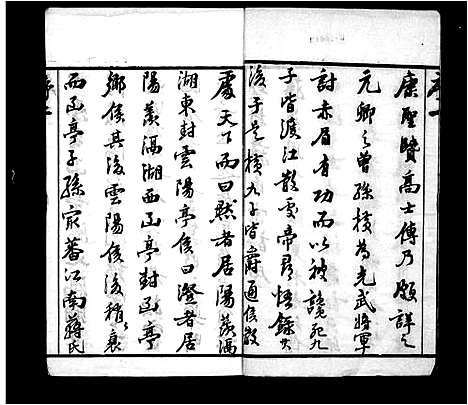 序一
康聖賢高士傳乃頗詳之
元卿之曾孫橫為光武將軍
討赤眉有功而以被譖死九
子皆渡江散處帝尋悟錄其
後子是橫九子皆爵通侯散
處天下而曰默者居陽羨滆
湖東封雲陽亭侯曰澄者居
陽羨滆湖西㔾亭封㔾亭
鄉侯其後雲陽侯後稍衰
而㔾亭子孫最蕃江南蔣氏
序二